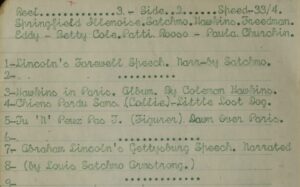 Reel............3. - Side..2.......Speed-33/4.
Springfield Illenoise. Satchmo. Hawkins. Freedman.
Eddy - Betty Cole. Patti. Booso - Paula. Churchin.
1-Lincoln's Farewell Speech. Narr-by Satchmo.
2- ..........
3-Hawkins in Paris. Album. By Coleman Hawkins.
4-Chiens Perdu Sans. (Collie)-Little Lost Dog.
5-Tu 'N' Peux Pas T. (Figurer). Dawn Over Paris.
6- ..........
7- Abraham Lincoln's Gettysburg Speech. Narrated
8- (by Louis Satchmo Armstrong.)
9-